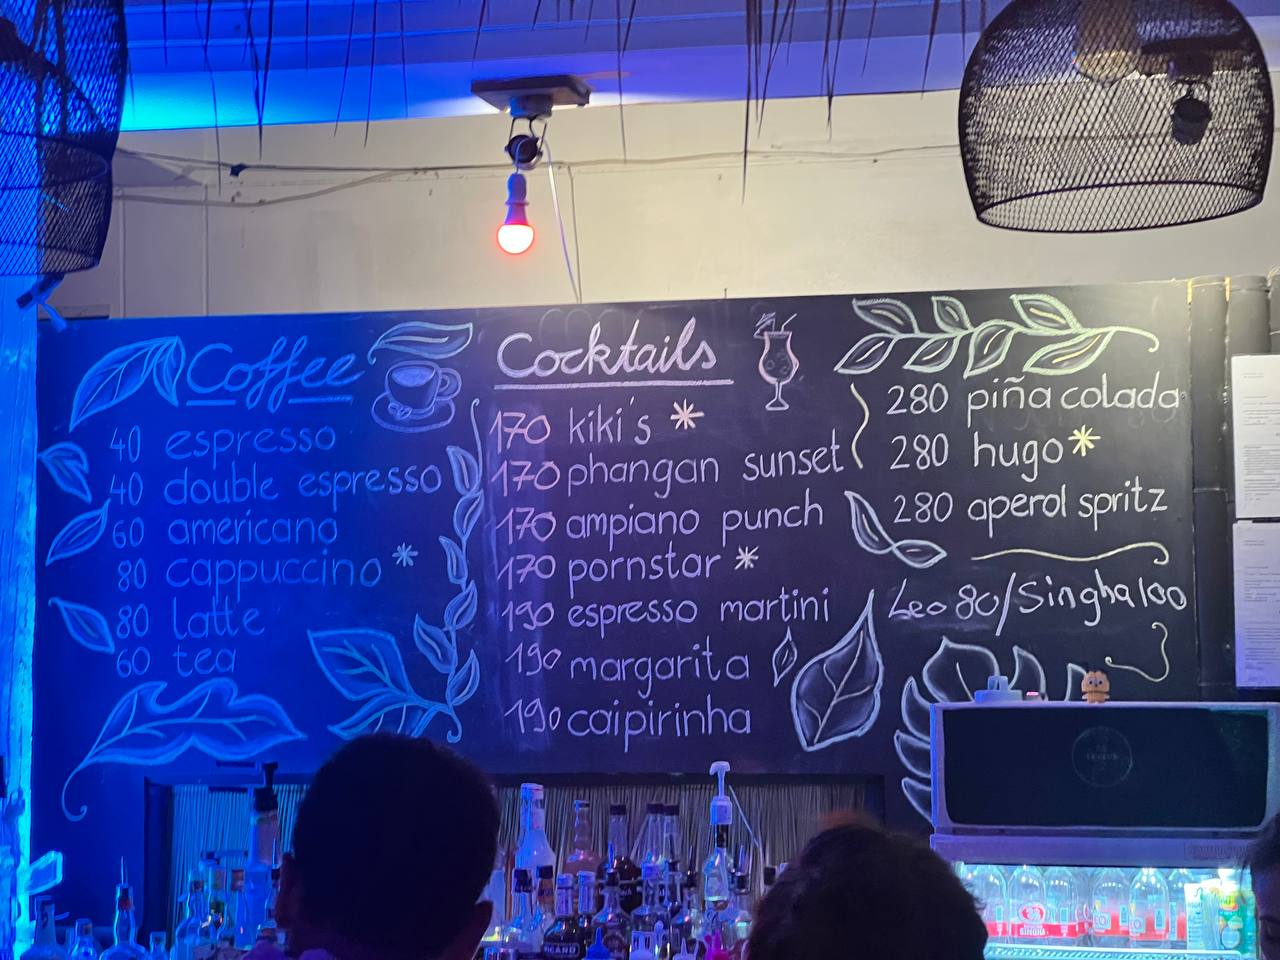 Coffee
40 espresso
40 double espresso
60 americano
80 cappuccino *
80 latte
60 tea
Cocktails
170 kiki's *
170 phangan sunset
170 ampiano punch
170 pornstar *
190 espresso martini
190 margarita
190 caipirinha
280 piña colada
280 hugo *
280 aperol spritz
Leo 80/Singha 100
SINGHA